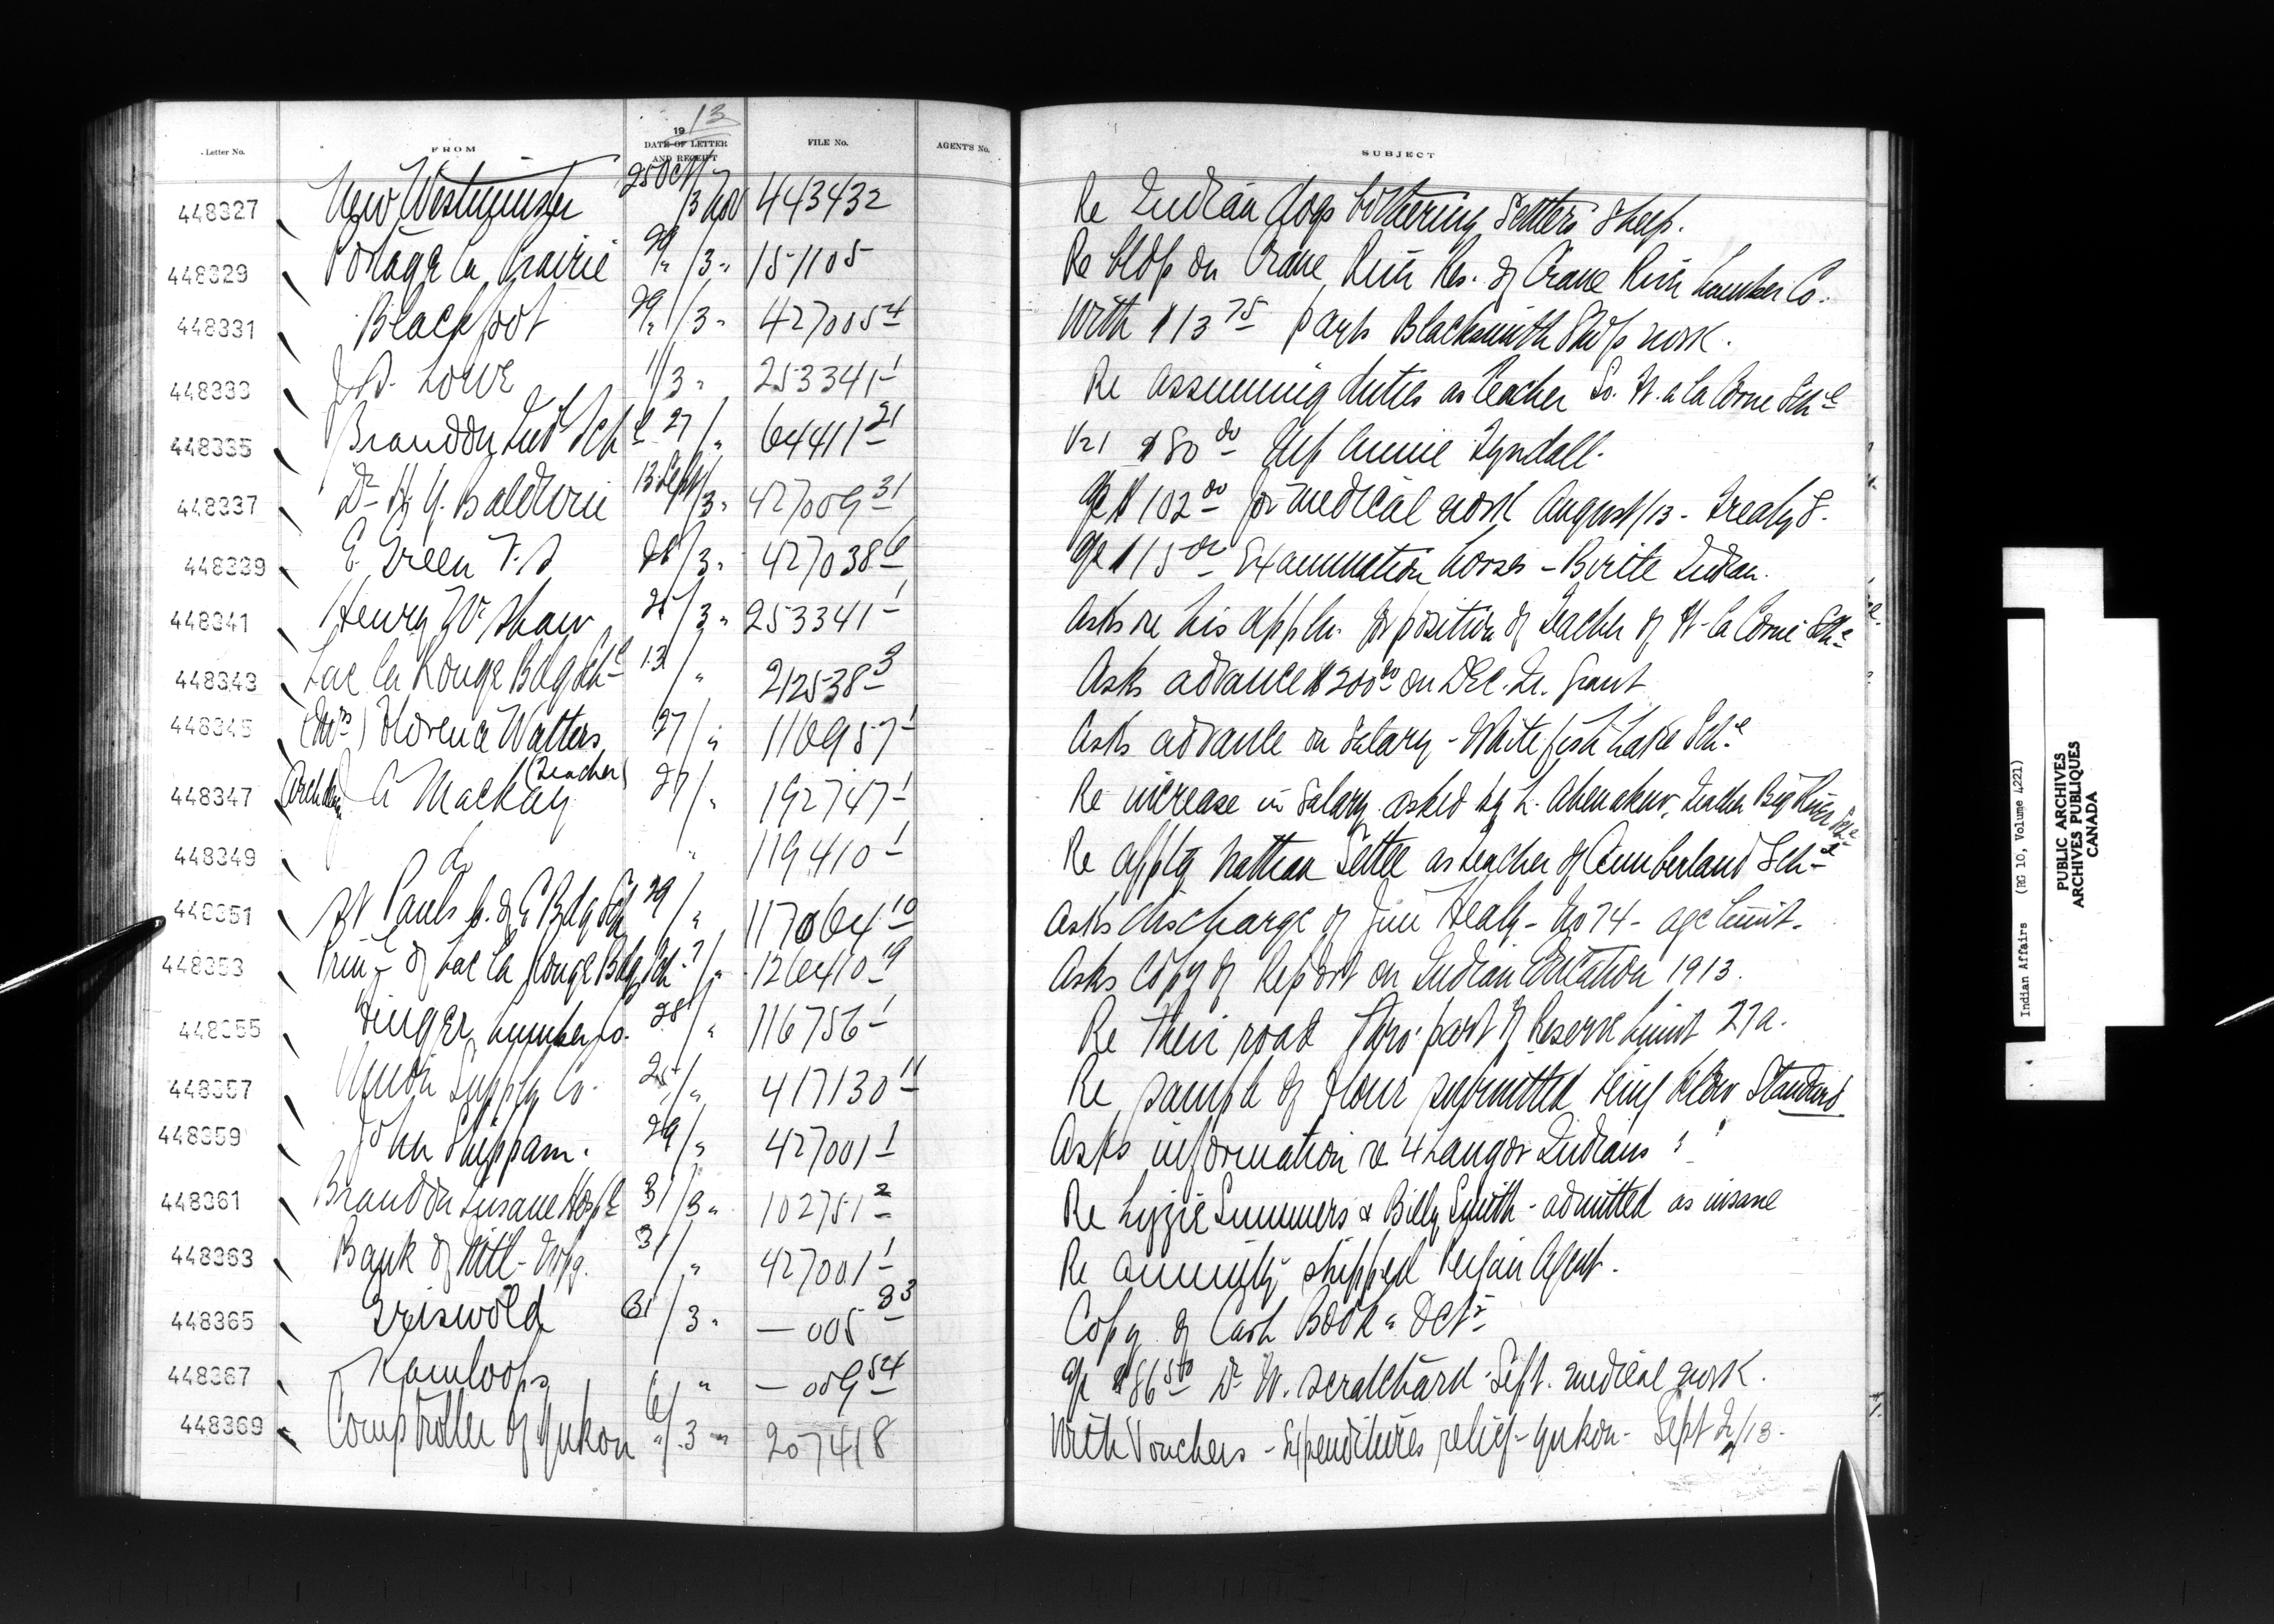 Letter No. FROM 1913 DATE OF LETTER AND RECEIPT FILE No. AGENT'S No. SUBJECT
448327 New Westminster 25 Oct 3 Nov 443432 Re Indian dogs bothering Settlers Sheep.
448329 Portage la Prairie 29/" 3 " 151105 Re on Crane River Res. of Crane River Lumber Co.
448331 Blackfoot 29/" 3 " 427005 4 With $13 75 Blacksmith Shop work.
448333 Lowe 1/3 " 253341 1 Re assuming duties as teacher So. Ft. a la Corne Sch l
448335 Brandon Ind l Sch l 27/" 64411 21 $80 00 Annie Tyndall.
448337 Dr H. Y. Baldwin 13 Sept/3 " 427009 31 a/c $102 00 for medical work August/13 - Treaty 8.
448339 E. Green V.S 28/3 " 427038 6 a/c $15 00 Examination horses - Birtle Indian.
448341 Henry W. Shaw 25/3 " 253341 1 Asks re his appln. for position of teacher of Ft. la Corne Sch l
448343 Lac la Ronge Bdg Sch l 13/" 212538 3 Asks advance $200 00 on Dec. Qr. Grant
448345 (Mrs) Florence Walters (Teacher) 27/" 116957 1 Asks advance on Salary - White fish Lake Sch l
448347 Archdn J A Mackay 27/" 192747 1 Re increase in Salary asked by L. Ahenakew, Teacher Big River Sch l
448349 do " 119410 1 Re applg. Nathan Settee as teacher of Cumberland Sch l
448351 St Pauls C. of E Bdg Sch 29/" 117064 10 Asks discharge of Jim Healy - No 74 - age limit.
448353 Prin l of Lac la Ronge Bdg Sch ?/" 126410 9 Asks copy of Report on Indian Education 1913.
448355 Finger Lumber Co. 28/" 116756 1 Re their road thro' part of Reserve Limit 27a.
448357 Union Supply Co. 25/" 417130 11 Re sample of flour submitted being below Standard
448359 John Shippam. 29/" 427001 1 Asks information re 4 Indians
448361 Brandon Insane Hosp l 31/3 " 102751 2 Re Lizzie Summers & Billy Smith - admitted as insane
448363 Bank of Mtl - Wpg. 31/" 427001 1 Re annuity shipped Agent.
448365 Griswold 31/3 " — 005 83 Copy of Cash Book - Oct r
448367 Kamloops " — 009 54 a/c $86 50 Dr W. Scratchard - Sept. medical work.
448369 Comptroller of Yukon 6/3 " 207418 With Vouchers - Expenditures relief - Yukon - Sept Qr/13 -
Indian Affairs (RG 10, Volume 4221)
PUBLIC ARCHIVES
ARCHIVES PUBLIQUES
CANADA